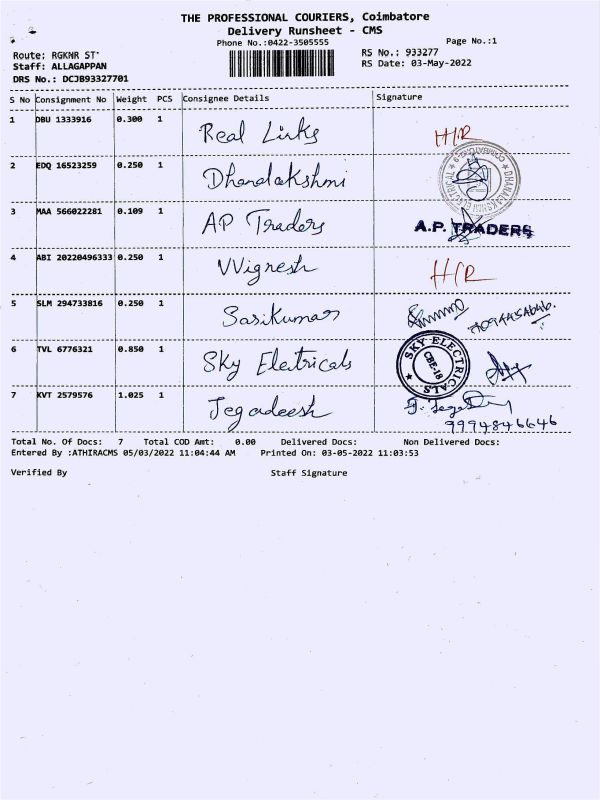 THE PROFESSIONAL COURIERS, Coimbatore
Delivery Runsheet - CMS
Phone No.:0422-3505555
Page No.:1
Route: RGKNR ST'
RS No.: 933277
Staff: ALLAGAPPAN
RS Date: 03-May-2022
DRS No.: DCJB93327701
S No Consignment No Weight PCS Consignee Details Signature
1 DBU 1333916 0.300 1 Real Links H/R
2 EDQ 16523259 0.250 1 Dhanalakshmi
3 MAA 566022281 0.109 1 AP Traders A.P. TRADERS
4 ABI 20220496333 0.250 1 VVignesh H/R
5 SLM 294733816 0.250 1 Sasikumar
6 TVL 6776321 0.850 1 Sky Electricals SKY ELECTRICALS CBE-18
7 KVT 2579576 1.025 1 Jegadeesh
9994846646
Total No. Of Docs: 7 Total COD Amt: 0.00 Delivered Docs: Non Delivered Docs:
Entered By :ATHIRACMS 05/03/2022 11:04:44 AM Printed On: 03-05-2022 11:03:53
Verified By Staff Signature